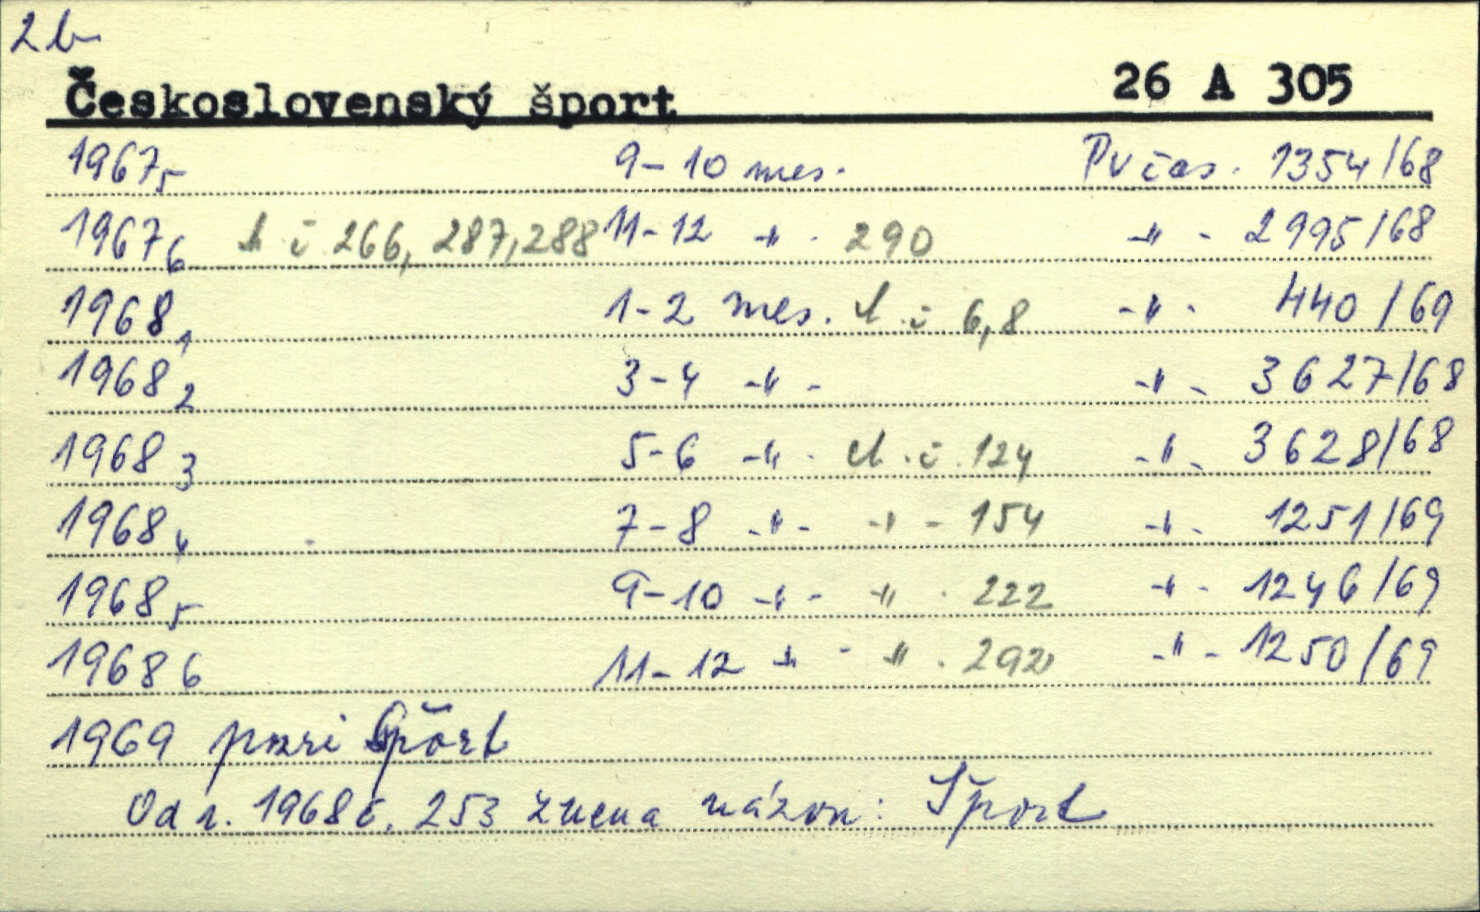 2b
Československý šport 26 A 305
1967 5 9-10 mes. Pv čas. 1354/68
1967 6 ch. č. 266, 287, 288 11-12 -"- 290 -"- 2995/68
1968 1 1-2 mes. ch. č. 6,8 -"- 440/69
1968 2 3-4 -"- -"- 3627/68
1968 3 5-6 -"- ch. č. 124 -"- 3628/68
1968 4 7-8 -"- -"- 154 -"- 1251/69
1968 5 9-10 -"- -"- 222 -"- 1246/69
1968 6 11-12 -"- -"- 292 -"- 1250/69
1969 pozri Šport
Od r. 1968 č. 253 zmena názvu: Šport